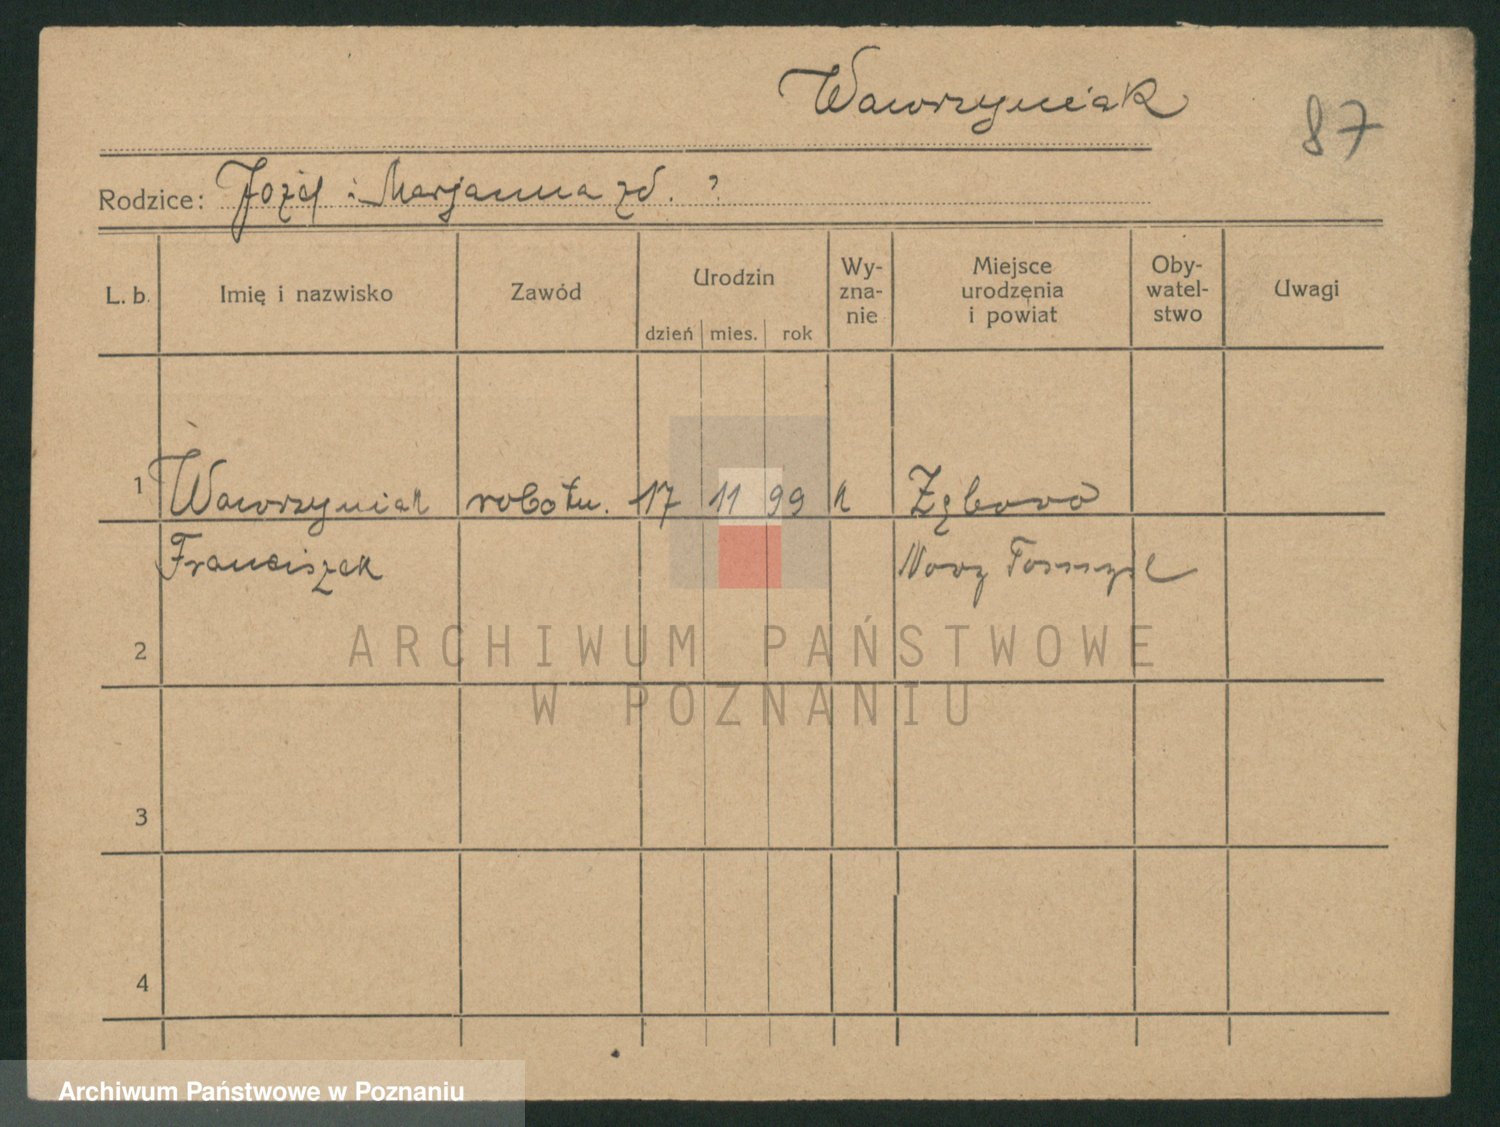 Wawrzyniak
87
Rodzice: Józef i Marjanna zd. ?
L. b. Imię i nazwisko Zawód Urodzin dzień mies. rok Wy-zna-nie Miejsce urodzenia i powiat Oby-watel-stwo Uwagi
1 Wawrzyniak robotn. 17 11 99 k Zębowo
Franciszek Nowy Tomyśl
2
ARCHIWUM PAŃSTWOWE
W POZNANIU
3
4
Archiwum Państwowe w Poznaniu